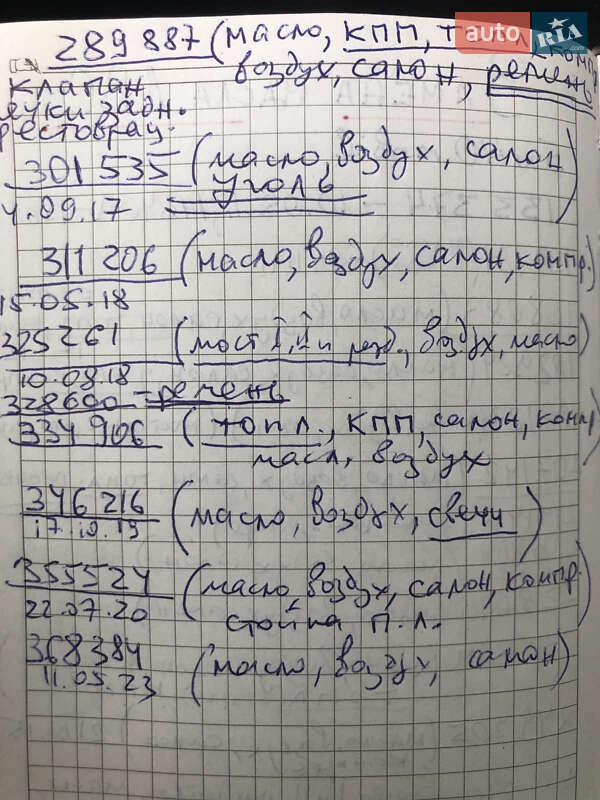 289887 (масло, КПП, т
auto RIA.com
воздух, салон, ремень
клапан
задн.
301535 (масло, воздух, салон)
уголь
4.09.17
311206 (масло, воздух, салон, компр.)
15.05.18
325261 (мост I, II и розд., воздух, масло)
10.08.18
328600 - ремень
334906 (топл., КПП, салон, комп)
масл, воздух
346216 (масло, воздух, свечи)
17.10.19
355524 (масло, воздух, салон, компр.
22.07.20 стойка п.л.
368384 (масло, воздух, салон)
11.05.23